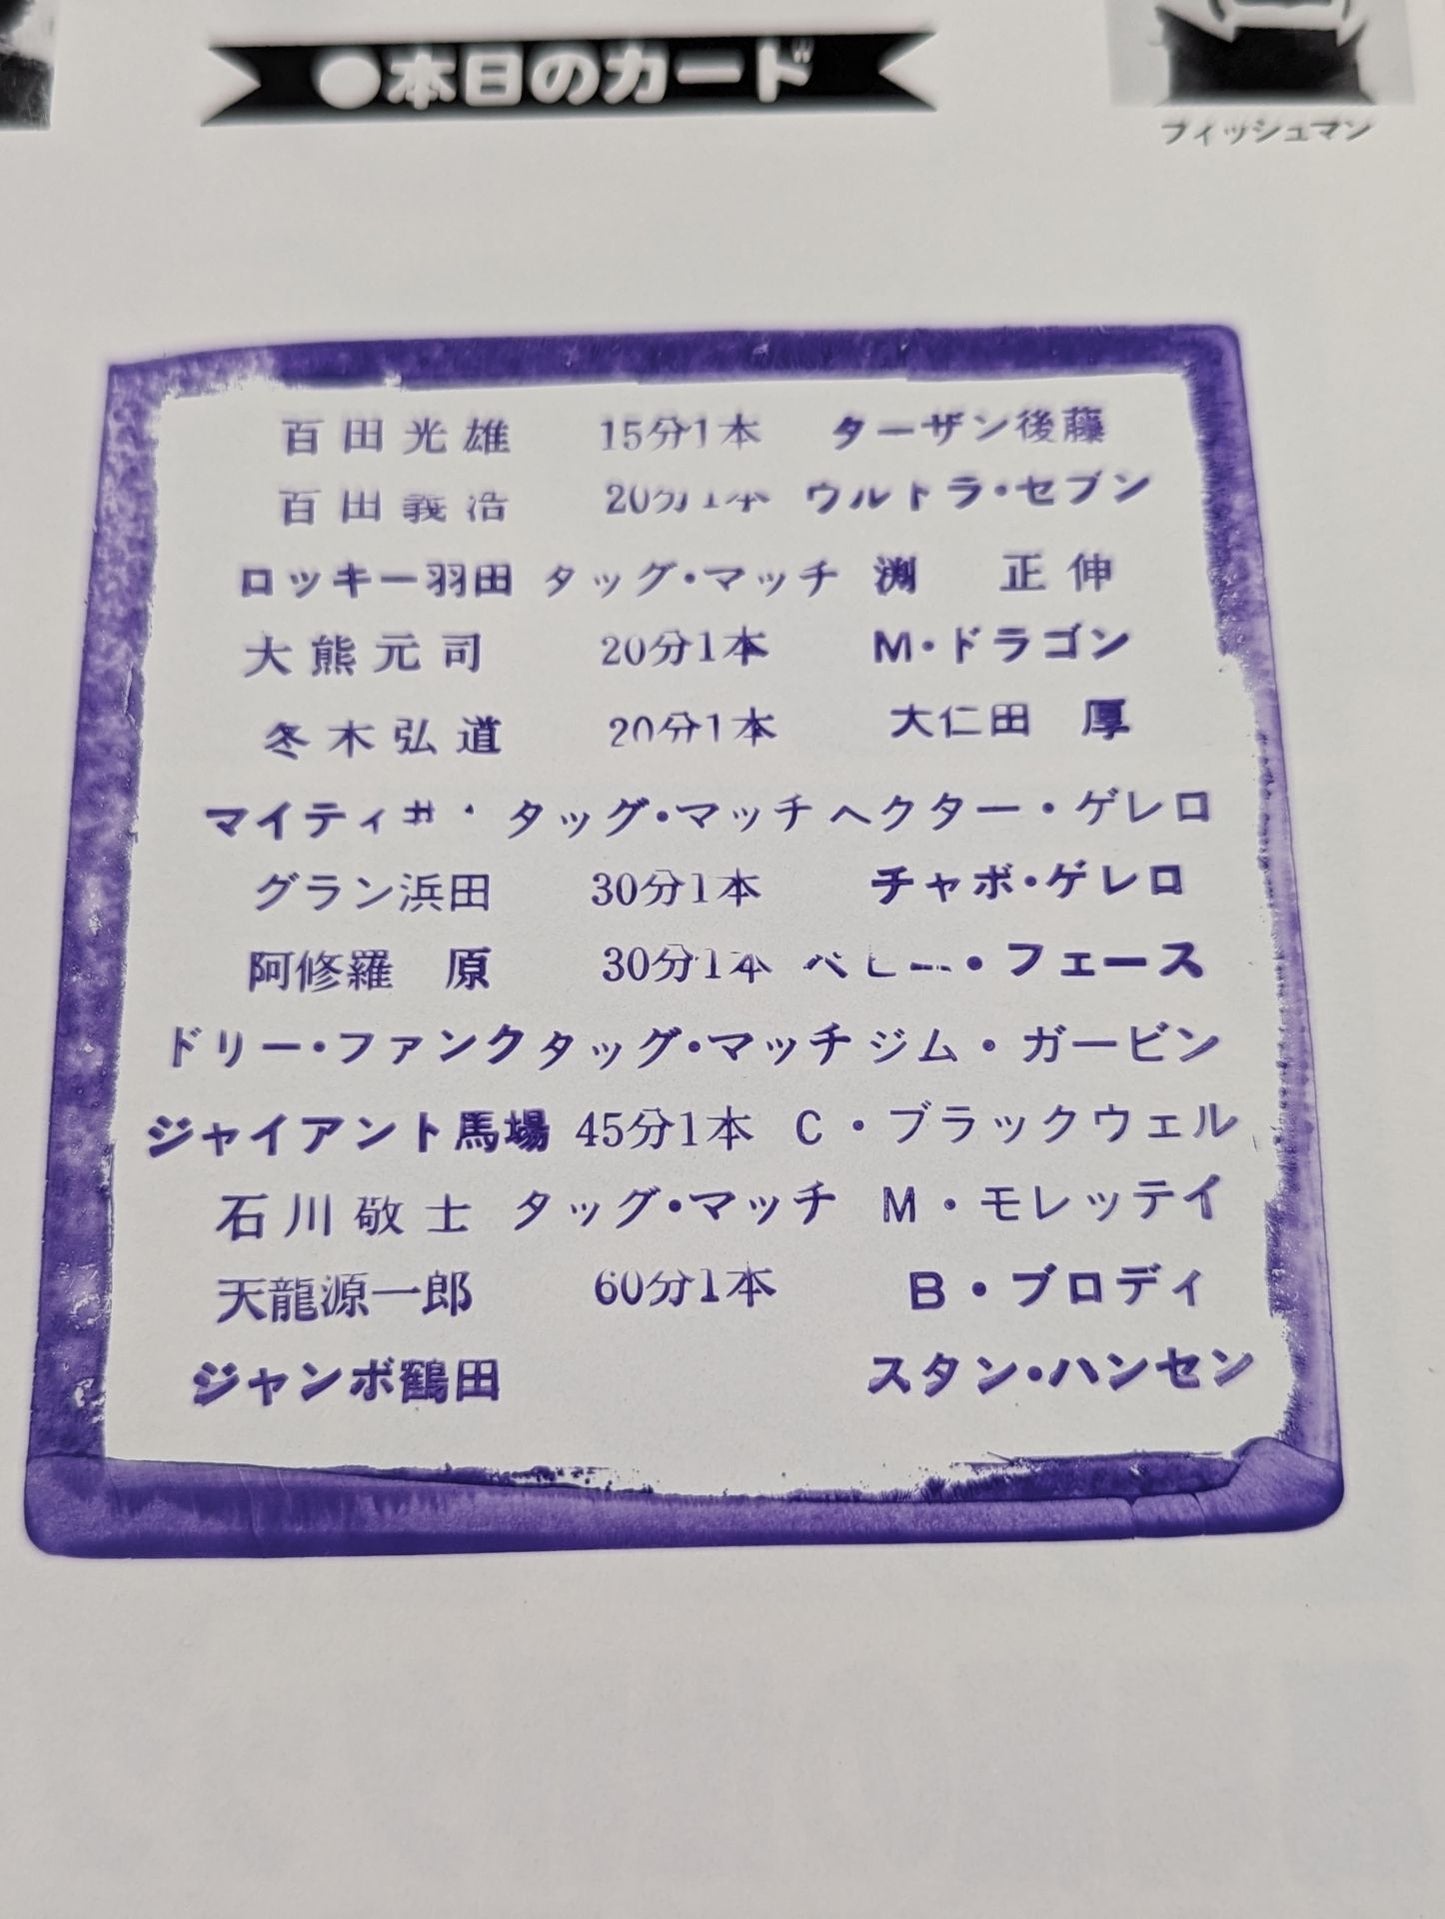 ●本日のカード
フィッシュマン
百田光雄 15分1本 ターザン後藤
百田義浩 20分1本 ウルトラ・セブン
ロッキー羽田 タッグ・マッチ 渕 正伸
大熊元司 20分1本 M・ドラゴン
冬木弘道 20分1本 大仁田 厚
マイティ タッグ・マッチ ヘクター・ゲレロ
グラン浜田 30分1本 チャボ・ゲレロ
阿修羅 原 30分1本 ・フェース
ドリー・ファンク タッグ・マッチ ジム・ガービン
ジャイアント馬場 45分1本 C・ブラックウェル
石川敬士 タッグ・マッチ M・モレッテイ
天龍源一郎 60分1本 B・ブロディ
ジャンボ鶴田 スタン・ハンセン